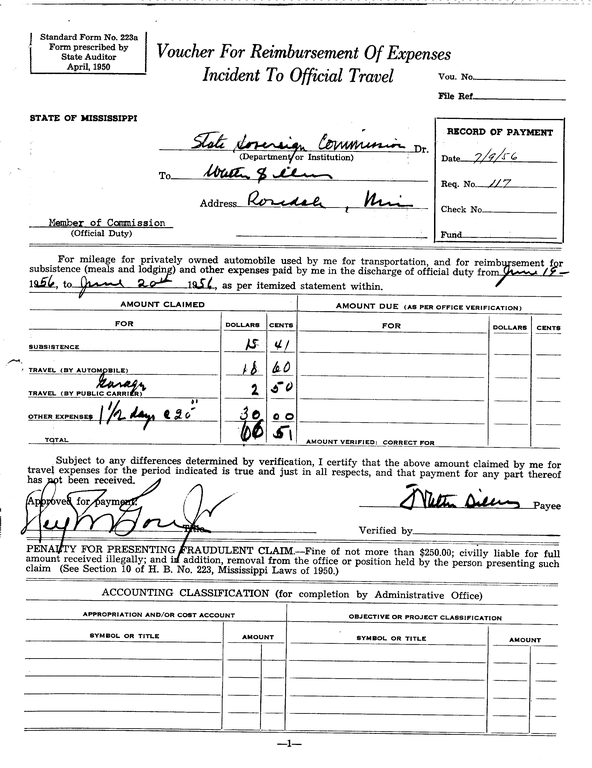 Standard Form No. 223a
Form prescribed by
State Auditor
April, 1950
Voucher For Reimbursement Of Expenses
Incident To Official Travel
Vou. No.
File Ref.
STATE OF MISSISSIPPI
State Sovereign Commission Dr.
(Department or Institution)
To
Address Rosedale, Miss
Member of Commission
(Official Duty)
RECORD OF PAYMENT
Date 7/9/56
Req. No. 117
Check No.
Fund
For mileage for privately owned automobile used by me for transportation, and for reimbursement for
subsistence (meals and lodging) and other expenses paid by me in the discharge of official duty from June 19-
1956, to June 20th 1956, as per itemized statement within.
AMOUNT CLAIMED
AMOUNT DUE (AS PER OFFICE VERIFICATION)
FOR DOLLARS CENTS FOR DOLLARS CENTS
SUBSISTENCE 15 41
TRAVEL (BY AUTOMOBILE) 18 60
Garage
TRAVEL (BY PUBLIC CARRIER) 2 50
OTHER EXPENSES 1 1/2 days @ 20 30 00
TOTAL 66 51 AMOUNT VERIFIED: CORRECT FOR
Subject to any differences determined by verification, I certify that the above amount claimed by me for
travel expenses for the period indicated is true and just in all respects, and that payment for any part thereof
has not been received.
Approved for payment:
Walter Payee
Title
Verified by
PENALTY FOR PRESENTING FRAUDULENT CLAIM.—Fine of not more than $250.00; civilly liable for full
amount received illegally; and in addition, removal from the office or position held by the person presenting such
claim (See Section 10 of H. B. No. 223, Mississippi Laws of 1950.)
ACCOUNTING CLASSIFICATION (for completion by Administrative Office)
APPROPRIATION AND/OR COST ACCOUNT
OBJECTIVE OR PROJECT CLASSIFICATION
SYMBOL OR TITLE AMOUNT SYMBOL OR TITLE AMOUNT
—1—